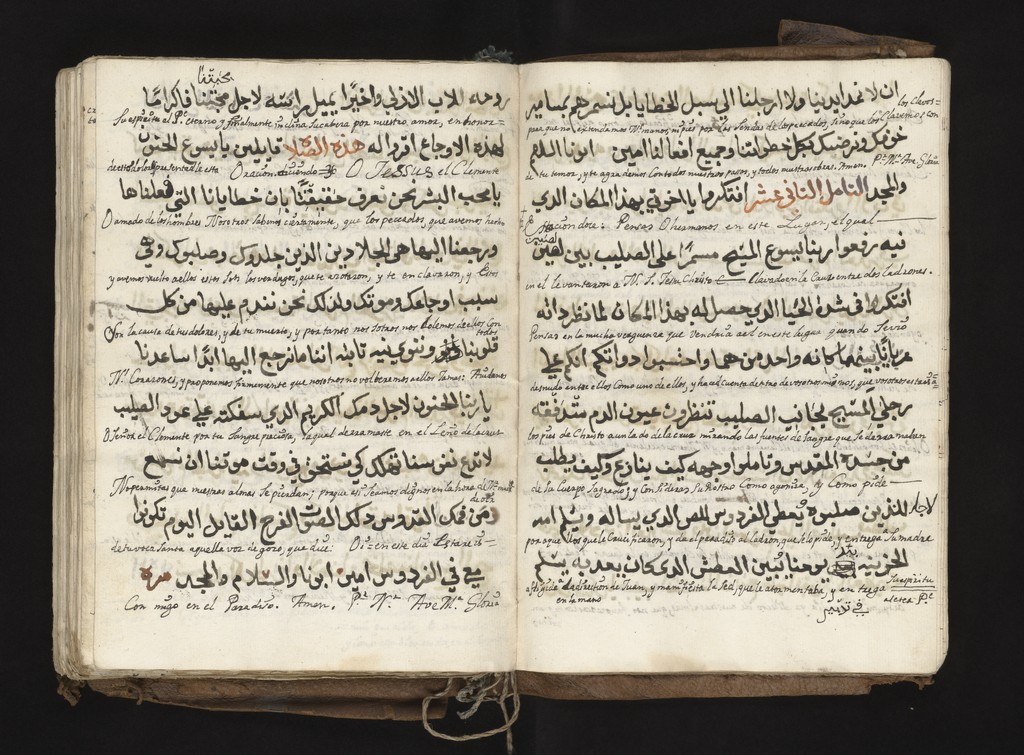 ان لا نمد ايدينا ولا ارجلنا الي سبل الخطايا بل نسمرهم بمسامير
los Clavos
para que no extendamos Nras manos, ni pies por las Sendas de los pecados, sino que los Clavemos con
خوفك ونرضيك بكل خطواتنا وجميع افعالنا امين ابونا السلام
de tu temor, y te agrademos Con todos nuestros pasos, y todas nuestras obras. Amen. Pe. No. Ave. Gloria
والمجد التامل الثاني عشر افتكروا يا اخوتي بهذا المكان الذي
Estacion doce: Pensad O hermanos en este Lugar, el qual
فيه رفعوا ربنا يسوع المسيح مسمرا علي الصليب بين لصين
en el levantaron a N. S. Jesu Christo Clavado en la Cruz entre dos ladrones.
افتكروا في شدة الحيا الذي حصل له بهذا المكان لما نظر ذاته
Pensad en la mucha verguenza que vendria a el en este lugar quando se vio
عريانا بينهما كانه واحد من هما واحتسبوا ذواتكم انكم علي
desnudo entre ellos Como uno de ellos, y haced cuenta dentro de vosotros mismos, que vosotros estais a
رجلي المسيح بجانب الصليب تنظرون عيون الدم متدفقه
los pies de Christo a un lado de la cruz mirando las fuentes de sangre que se derramaban
من جسده المقدس وتاملوا وجهه كيف ينازع وكيف يطلب
de su Cuerpo Sagrado; y Considerad su Rostro Como agoniza, y Como pide
لاجل الذين صلبوه يعطي الفردوس للص الذي يساله ويسلم امه
por aquellos que le Crucificaron, y da el paraiso al ladron, que lo pide, y entrega a su madre
الحزينه بيد يوحنا يبين العطش الذي كان يعذبه يسلم
afligida a la direccion de Juan, y manifiesta la sed, que le atormentaba, y entrega su espiritu
en la mano a el eter. Pe.
روحه للاب الازلي واخيرا يميل راسه لاجل محبتنا فاكراما
Su espiritu al Pe. eterno y finalmente inclina su cabeza por nuestro amor, en honor
لهذه الاوجاع اقروا له هذه الصلا قايلين يا يسوع الحنون
de estos dolores presentadle esta Oracion diciendo O Jesus el Clemente
يا محب البشر نحن نعرف حقيقتًا بان خطايانا التي فعلناها
O amado de los hombres Nosotros sabemos ciertamente, que los peccados, que avemos hecho
ورجعنا اليها هي الجلادين الذين جلدوك وصلبوك وهي
y avemos vuelto a ellos estos son los verdugos, que te azotaron, y te en clavaron, y Estos
سبب اوجاعك وموتك ولذلك نحن نندم عليها من كل
Son la causa de tus dolores, y de tu muerte, y por tanto nosotros nos dolemos de ellos Con todos
قلوبنا وننوي نيه ثابته اننا ما نرجع اليها ابدا ساعدنا
Nros Corazones, y proponemos firmemente que nosotros no volberemos a ellos Jamas: Ayudanos
يا ربنا الحنون لاجل دمك الكريم الذي سفكته علي عود الصليب
O Señor el Clemente por tu Sangre preciosa, la qual derramaste en el Leño de la cruz
لا تدع نفوسنا تهلك كي نستحق في وقت موتنا ان نسمع
No permitas que nuestras almas se pierdan; para que asi seamos dignos en la hora de Nra muerte de oir
من فمك القدوس ذلك الصوت الفرح القايل اليوم تكونوا
de tu voca Santa aquella voz de gozo, que dice: Oi en este dia Estareis
معي في الفردوس امين ابونا والسلام والمجد مرة
Con migo en el Paradiso. Amen. Pe. No. Ave Ma. Gloria